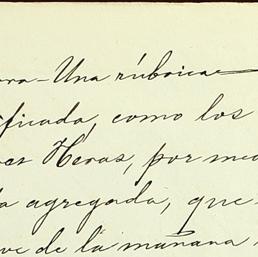 ora-Una rúbrica
ificada, como los
ces Heras, por med
la agregada, que
ve de la mañana